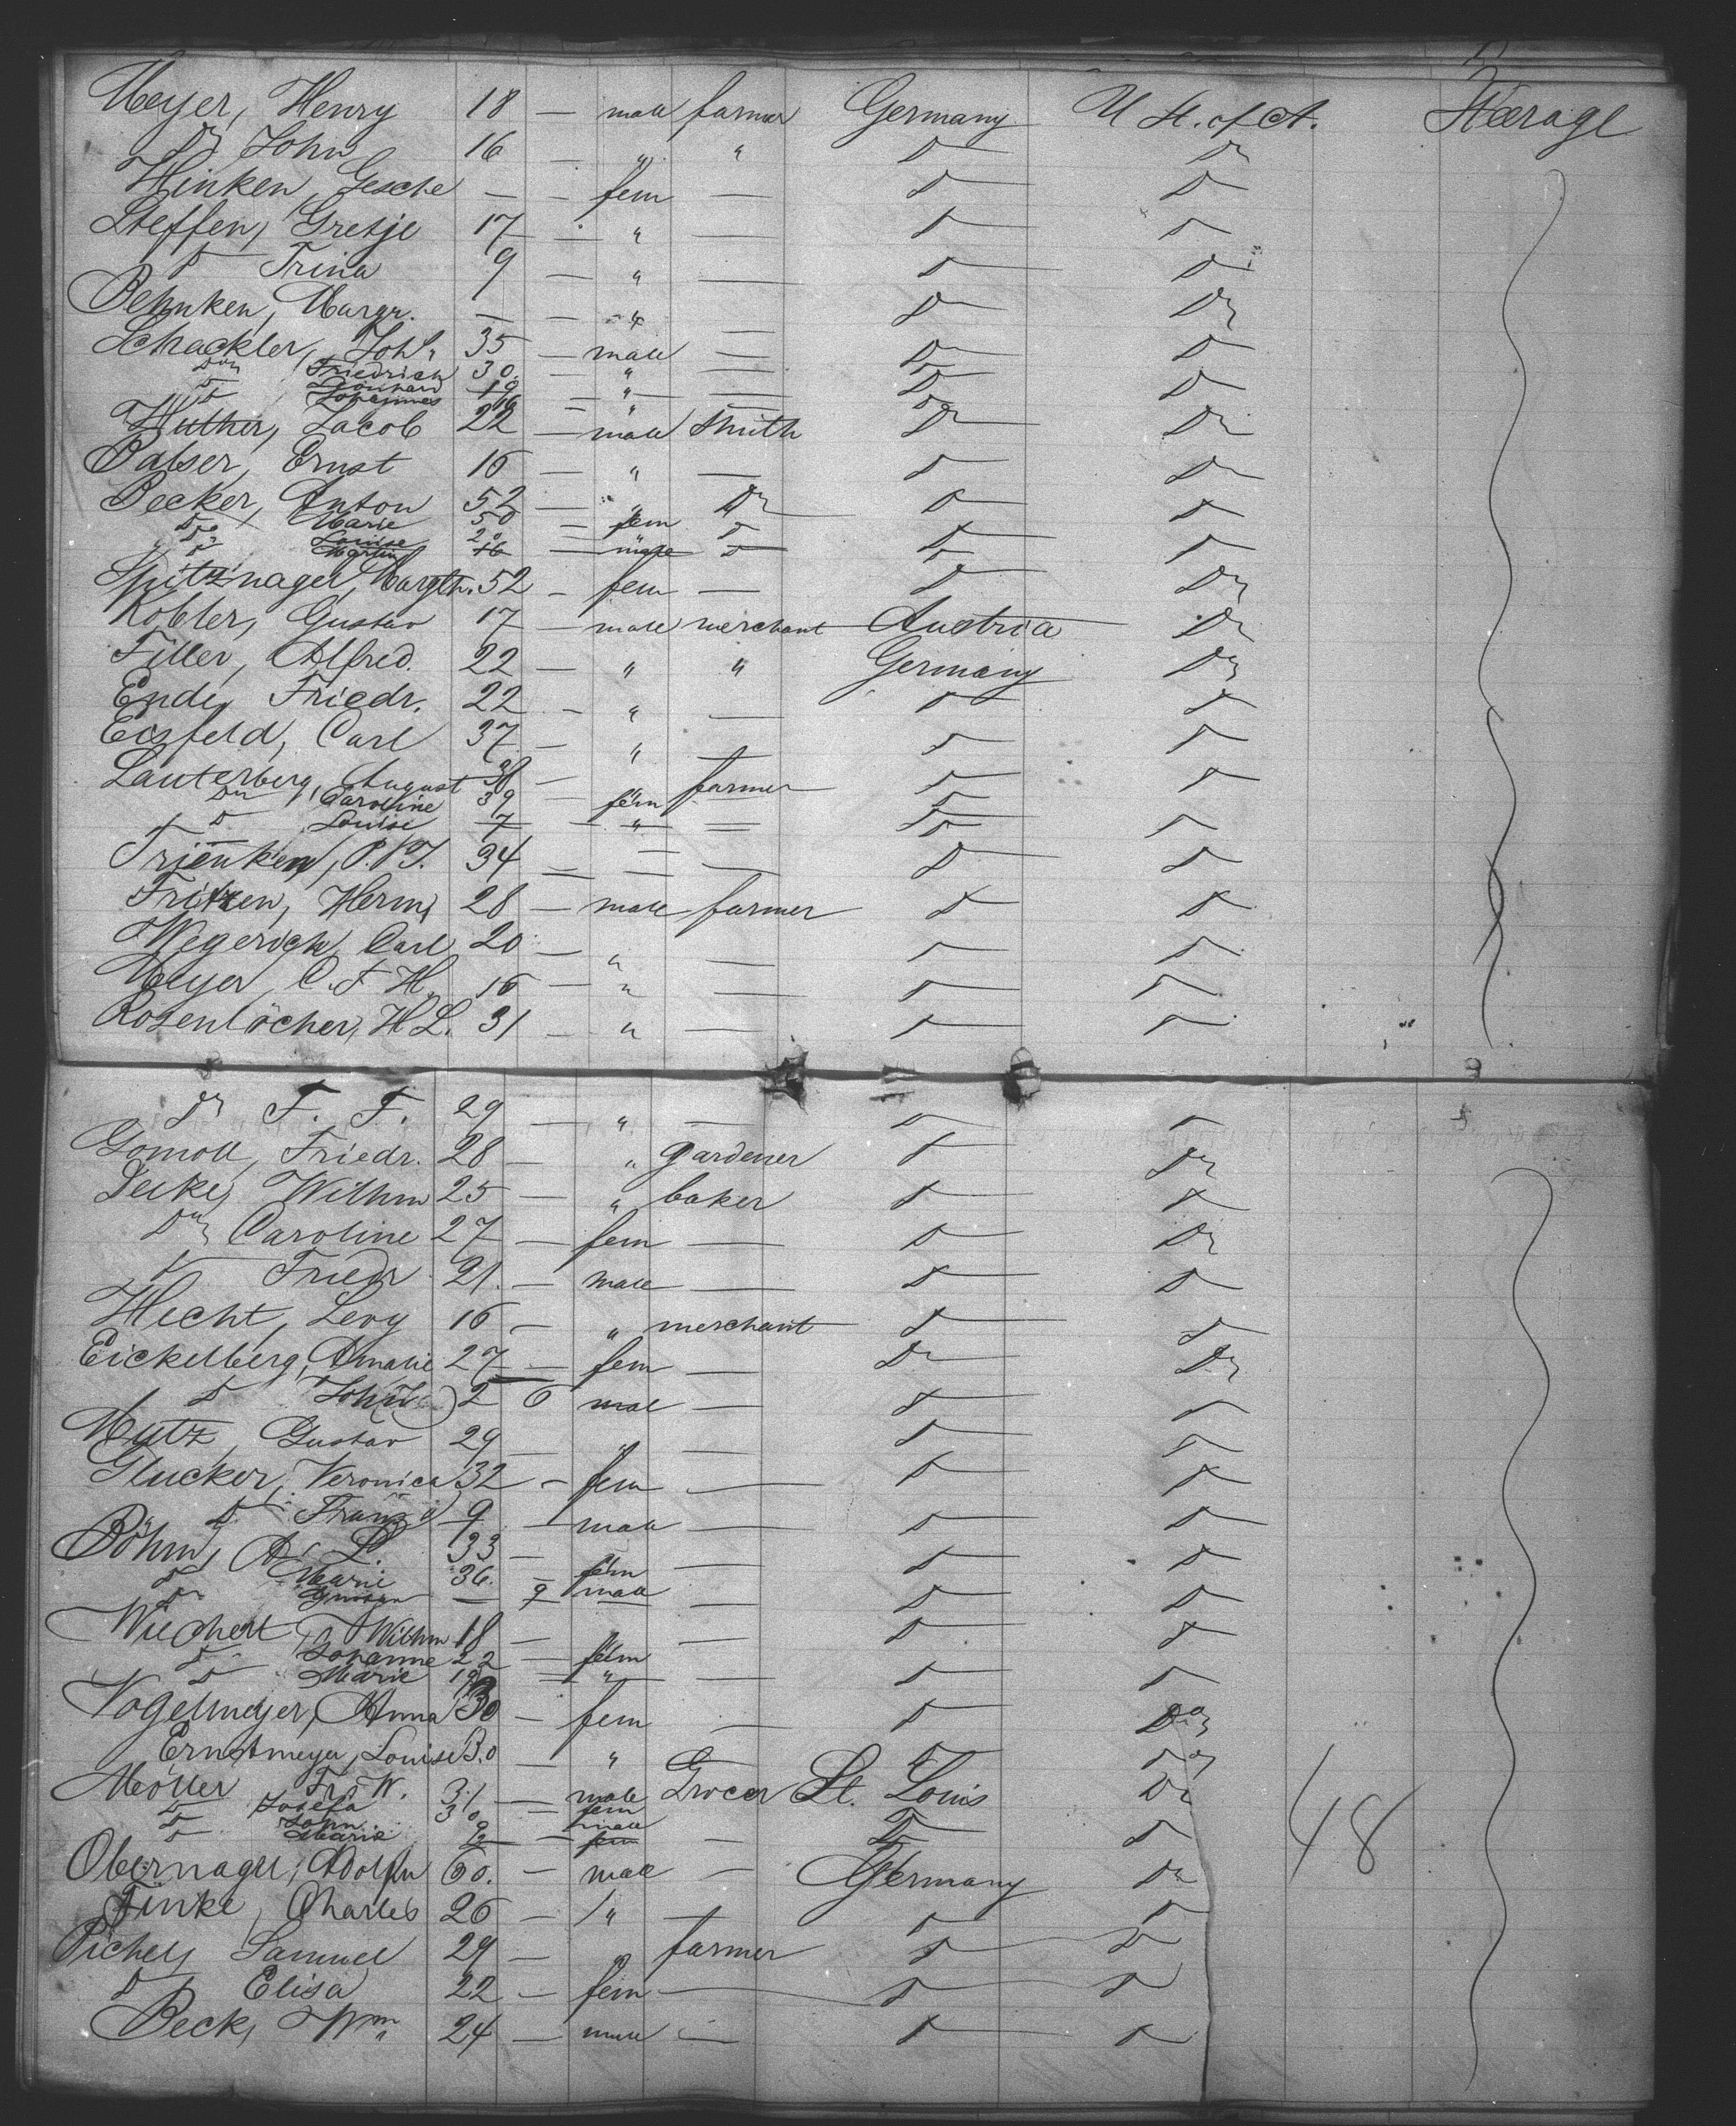 Meyer, Henry 18 — male farmer Germany U St. of A. Steerage
Do John 16 — " " Do Do
Hinken, Gesche — — fem — Do Do
Steffen, Gretje 17 — " — Do Do
Do Trina 9 — " — Do Do
Behnken, Margr. — — " — Do Do
Schackler, Joh. 35 — male — Do Do
Do Friedrich 30 — " — Do Do
Do Leonhard 19 — " — Do Do
Do Johannes 16 — " — Do
Huther, Jacob 22 — male Smith Do Do
Balser, Ernst 16 — " — Do Do
Becker, Anton 52 — " Do Do Do
Do Marie 50 — fem Do
Do Louise 20 — " Do Do
" Do Martin 16 — male Do Do
Spitznagel, Margth. 52 — fem — Do Do
Kobler, Gustav 17 — male merchant Austria Do
Filler, Alfred. 22 — " " Germany Do
Ende, Friedr. 22 — " — Do Do
Eisfeld, Carl 37 — " — Do Do
Lauterberg, August 38 — " farmer Do Do
Do Caroline 39 — fem — Do
Do Louise 7 — " — Do Do
Trienken, 34 — — — Do Do
Fritzen, Herm 28 — male farmer Do Do
Wegerich, Carl 20 — " — Do Do
Meyer, C. F. H. 16 — " — Do Do
Rosenlöcher, H. L. 31 — " — Do Do
Do F. F. 29 — " — Do Do
Gomoll, Friedr. 28 — " gardener Do Do
Wilhm 25 — " baker Do Do
Do Caroline 27 — fem — Do Do
Do Friedr 21 — male — Do Do
Hecht, Levy 16 — " merchant Do Do
Eickelberg, Amalie 27 — fem — Do Do
Do John 2 6 male — Do Do
Mutz, Gustav 29 — " — Do Do
Glucker, Veronica 32 — fem — Do Do
Do Franz 9 — male — Do Do
Böhm, A. L. 33 — — Do Do
Do Marie 36 — fem
Do — 9 male — Do Do
Wiechert, Wilhm 18 — — Do Do
Do Johanne 22 — fem
Do Marie 19 — " — Do Do
Vogelmeyer, Anna 30 — fem — Do Do
Ernstmeyer, Louise 30 — " — Do Do
Möller Fr. W. 31 — male Grocer St. Louis Do
Do Josefa 30 — fem
Do John 9 male Do
Do Marie — fem — Do Do
48
Obernagel, Adolph 60. — male — Germany Do
Finke, Charles 26 — " — Do Do
Pichel, Samuel 29 — " farmer Do Do
Do Elisa 22 — fem — Do Do
Beck, Wm 24 — male — Do Do